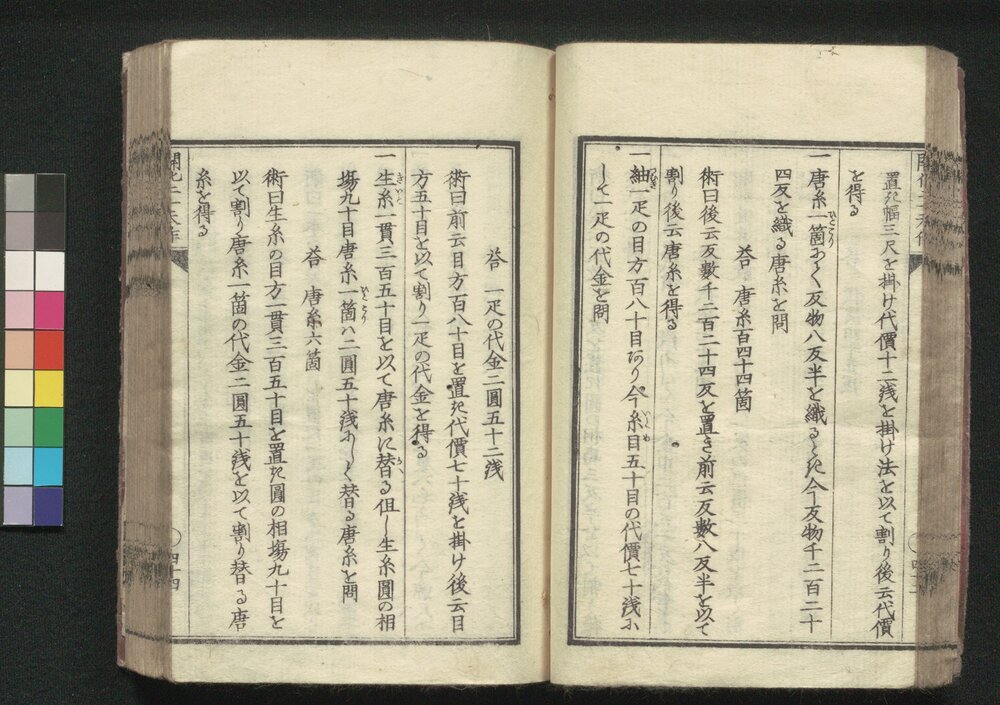 置き幅三尺を掛け代價十二浅を掛け法を以て割り後云代價
を得る
一唐糸一箇にて反物八反半を織ると元今反物千二百二十
四反を織る唐糸を問
答 唐糸百四十四箇
術曰後云反數千二百二十四反を置き前云反數八反半を以て
割り後云唐糸を得る
一紬一疋の目方百八十目あり今糸目五十目の代價七十浅に
して一疋の代金を問
答 一疋の代金二圓五十二浅
術曰前云目方百八十目を置き代價七十浅を掛け後云目
方五十目を以て割り一疋の代金を得る
一生糸一貫三百五十目を以て唐糸に替る但し生糸圓の相
塲九十目唐糸一箇ハ二圓五十浅にして替る唐糸を問
答 唐糸六箇
術曰生糸の目方一貫三百五十目を置き圓の相塲九十目を
以て割り唐糸一箇の代金二圓五十浅を以て割り替る唐
糸を得る
四十四